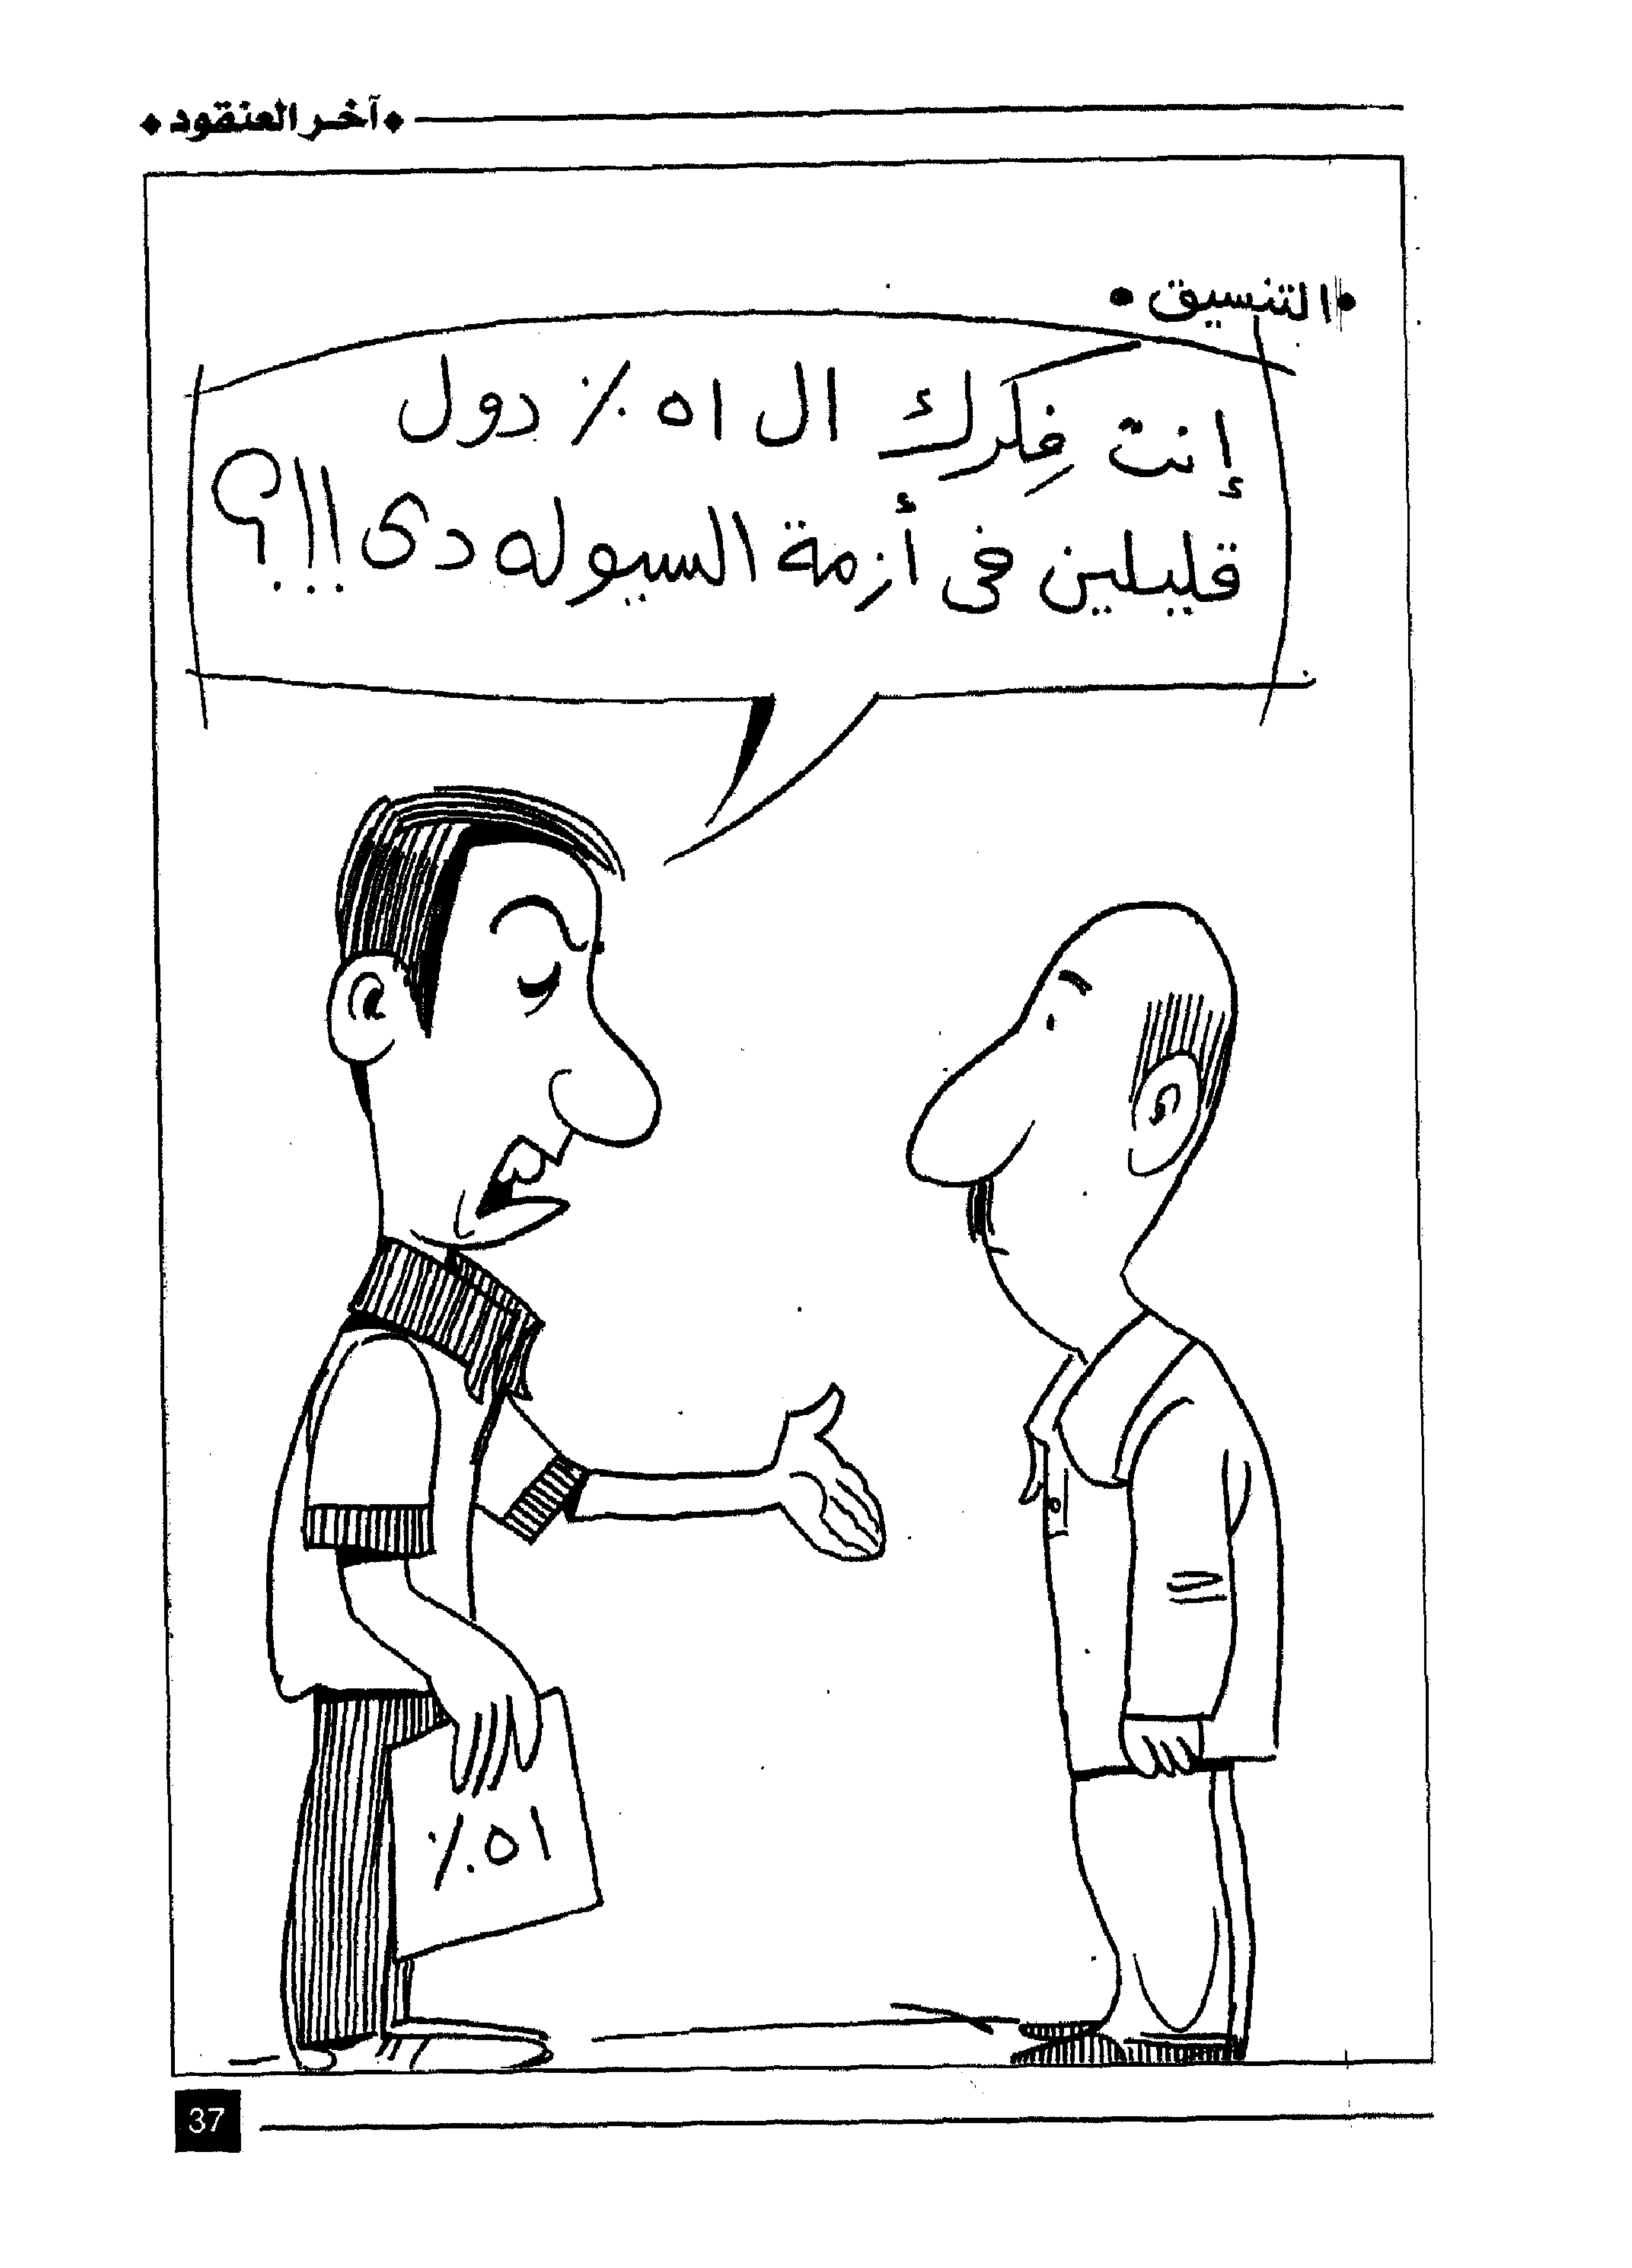 ◆آخر العنقود◆
•التنسيق•
إنت فِكرك ال ٥١٪ دول
قليلين فى أزمة السيوله دى !!!؟
٥١٪
37